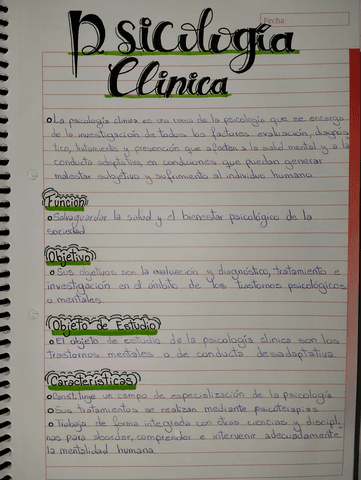 Fecha:
Psicología
Clinica
La psicología clinica es una rama de la psicología que se encarga
de la investigación de todos los factores, evaluación, diagnós
tico, tratamiento y prevención que afecten a la salud mental y a la
conducta adaptativa, en condiciones que puedan generar
malestar subjetivo y sufrimiento al individuo humano.
Función
Salvaguardar la salud y el bienestar psicológico de la
sociedad
Objetivo
Sus objetivos son la evaluación y diagnóstico, tratamiento e
investigación en el ámbito de los trastornos psicológicos
o mentales
Objeto de Estudio
El objeto de estudio de la psicología clinica son los
trastornos mentales o de conducta desadaptativa.
Características
Constituye un campo de especialización de la psicología
Sus tratamientos se realizan mediante psicoterapias
Trabaja de forma integrada con otras ciencias y discipli
nas para abordar, comprender e intervenir adecuadamente
la mentalidad humana.